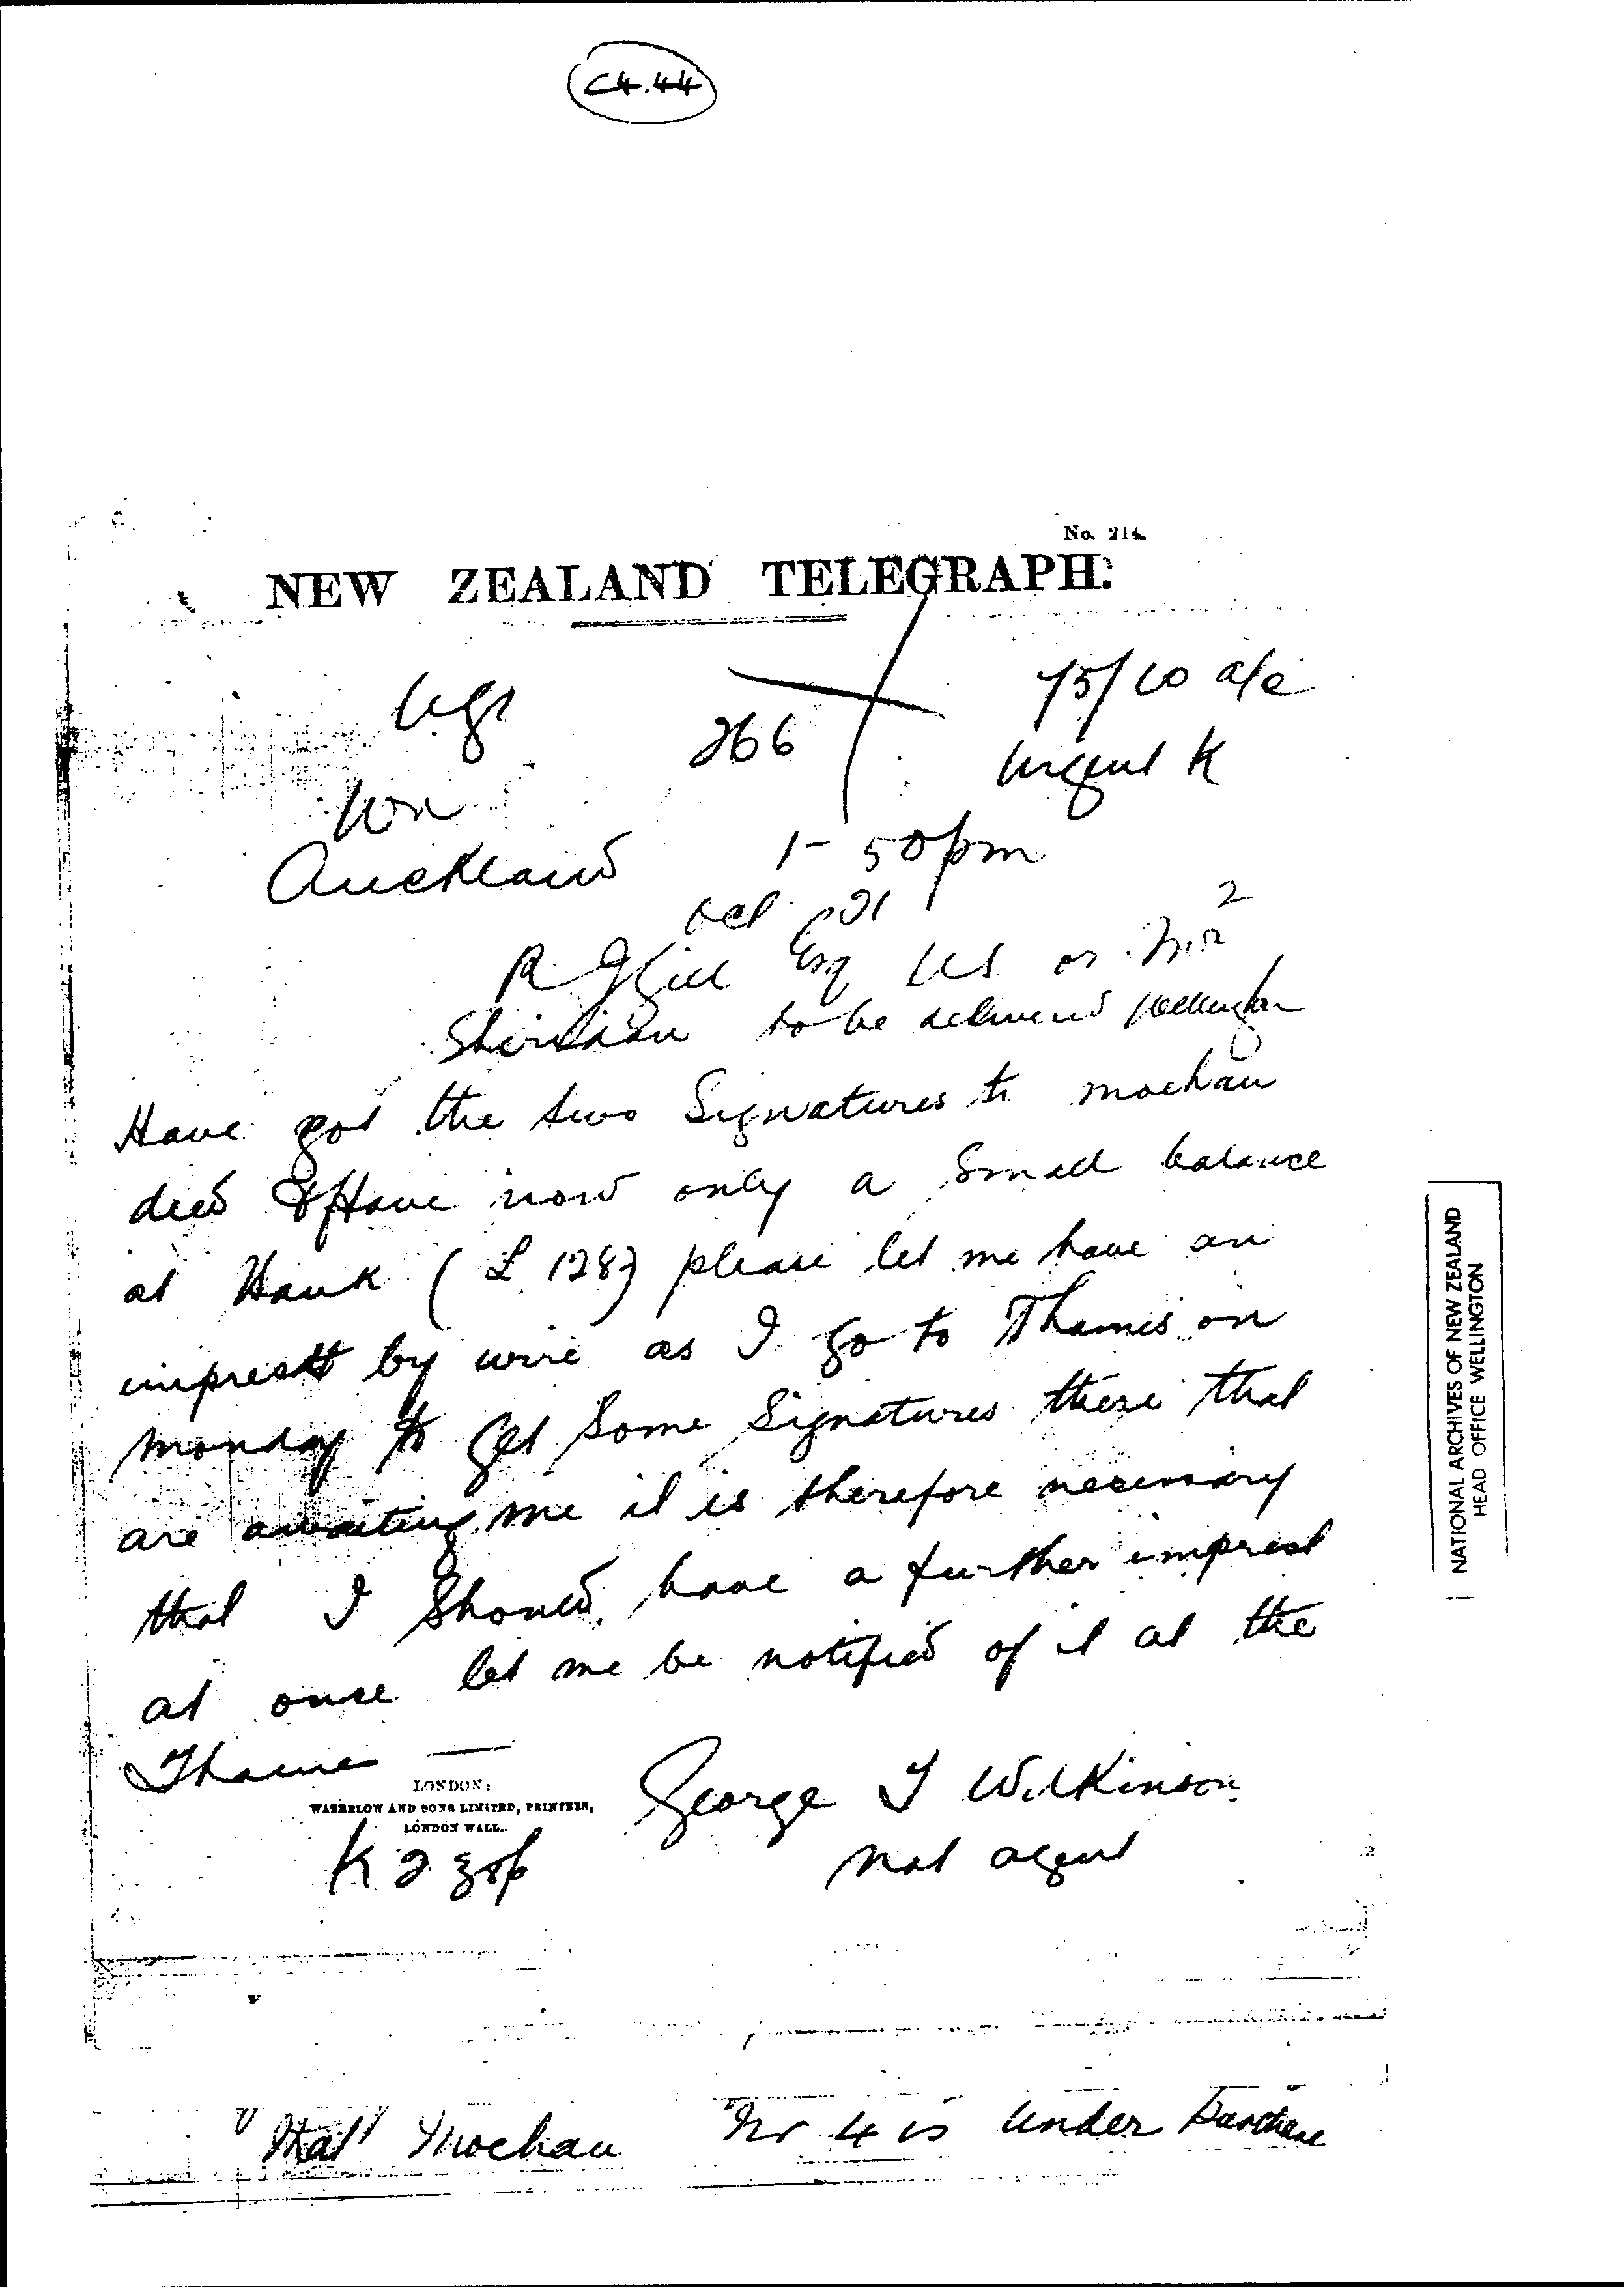 C4.44
No. 214.
NEW ZEALAND TELEGRAPH.
75/10 a/c
266
Urgent K
Wn
Auckland 1-50pm
Oct 21
2
R J Gill Esq US or Mr
Sheridan to be delivered Wellington
Have got the two Signatures to moehau
deed & Have now only a small balance
at Bank (£128) please let me have an
imprest by wire as I go to Thames on
monday to get some Signatures there that
are awaiting me it is therefore necessary
that I should have a further imprest
at once let me be notified of it at the
Thames —
LONDON:
WATERLOW AND SONS LIMITED, PRINTERS,
LONDON WALL.
George T Wilkinson
K 2 30p
Nat agent
Moehau No 4 is under Purchase
NATIONAL ARCHIVES OF NEW ZEALAND
HEAD OFFICE WELLINGTON